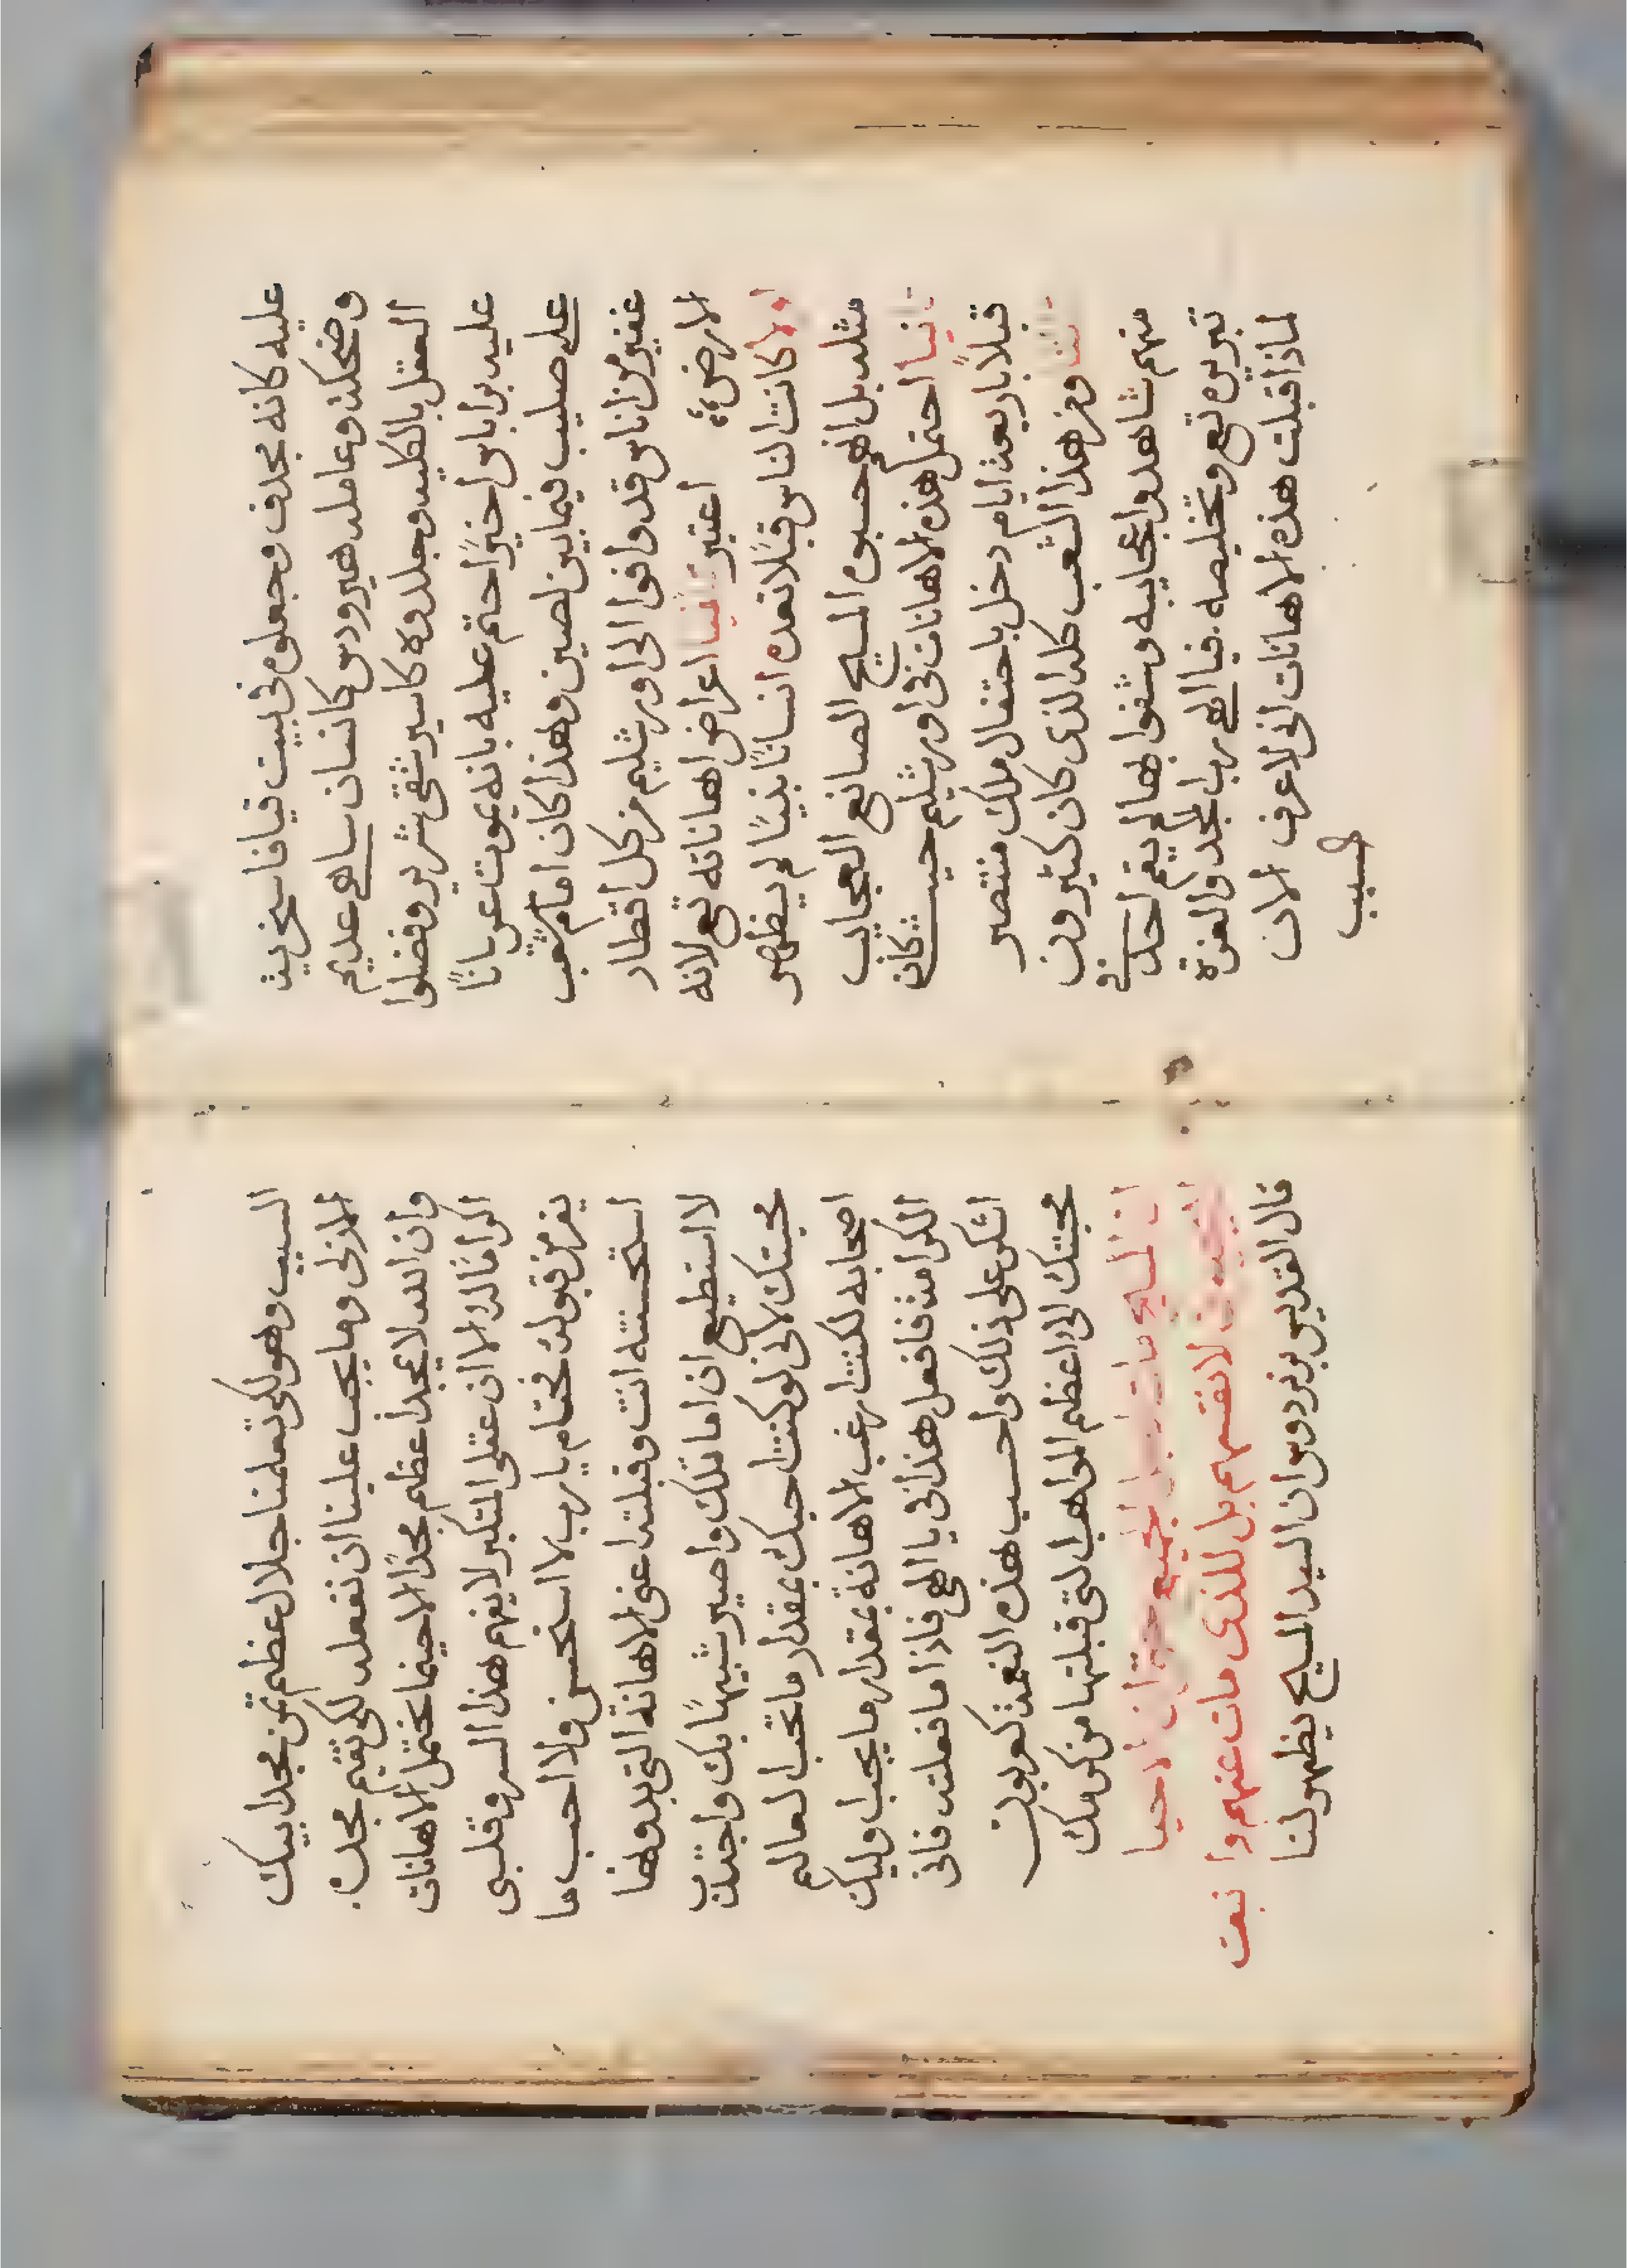 عليه كانه مجدف وجعلوه في بيت قيافا سخريث
وضحكث وعامله هيرودس كانسان ساهي عديم
العقل بالكليه وجلدوه كاسير شقي شرير وفضلوا
عليه براباس اخيرًا حتم عليه بانه يموت عريانًا
على صليب فيما بين لصين وهذا كان امام شعب
غفير من اناس قد وافوا الى اورشليم من كل اقطار
الارض اعتبر ثانيا اعراض اهاناته تع لانه
اولا كانت الناس قبلًا تعده انسانًا نبيًا لم يظهر
مثله بل انهم حسبوه المسيح الصانع العجايب
ثانيا احتمل هذه الاهانات في اورشليم حيث كان
قبلًا باربعة ايام دخل باحتفال ملك منتصر
ثالثا ومن هذا الشعب كله الذي كان كثيرون
منهم شاهدوا عجايبه وشفوا بها لم يقم احد في
تبريره تع وتخليصه فيا الهي رب المجد والعزة
لماذا قبلت هذه الاهانات اني لاعرف الان
السبب
السبب وهو لكي تعلمنا اجلال عظم ثمن مجد ابيك
الازلي وما يجب علينا ان نفعله لكي نقيم مجده
وان الله لا يمجد اعظم مجدًا الا حينما نحتمل الاهانات
اكرامًا له الا ان عقلي المتكبر لا يفهم هذا السر وقلبي
يفر من قبوله فحتام يارب لا استحسن ولا احب ما
استحسنته انت وقبلته اعني الاهانة التي بدونها
لا استطيع ان اماثلك واصير شبيهًا بك واجتذب
محبتك لاني لو كنت احبك بمقدار ما تحب العالم
اصحابه لكنت ارغب الاهانة بمقدار ما يجب اوليك
الكرامة فافعل هذا في يا الهي فاذا ما فعلت فاني
اشكر على ذلك واحسب هذه النعمة كعربون
محبتك لي واعظم المواهب التي قبلتها من كرمك
ان المسيح مات من اجل الجميع حتى ان الاحيا
لا يحيون لانفسهم بل للذي مات عنهم وانبعث
قال القديس برنردوس ان السيد المسيح يظهر لنا